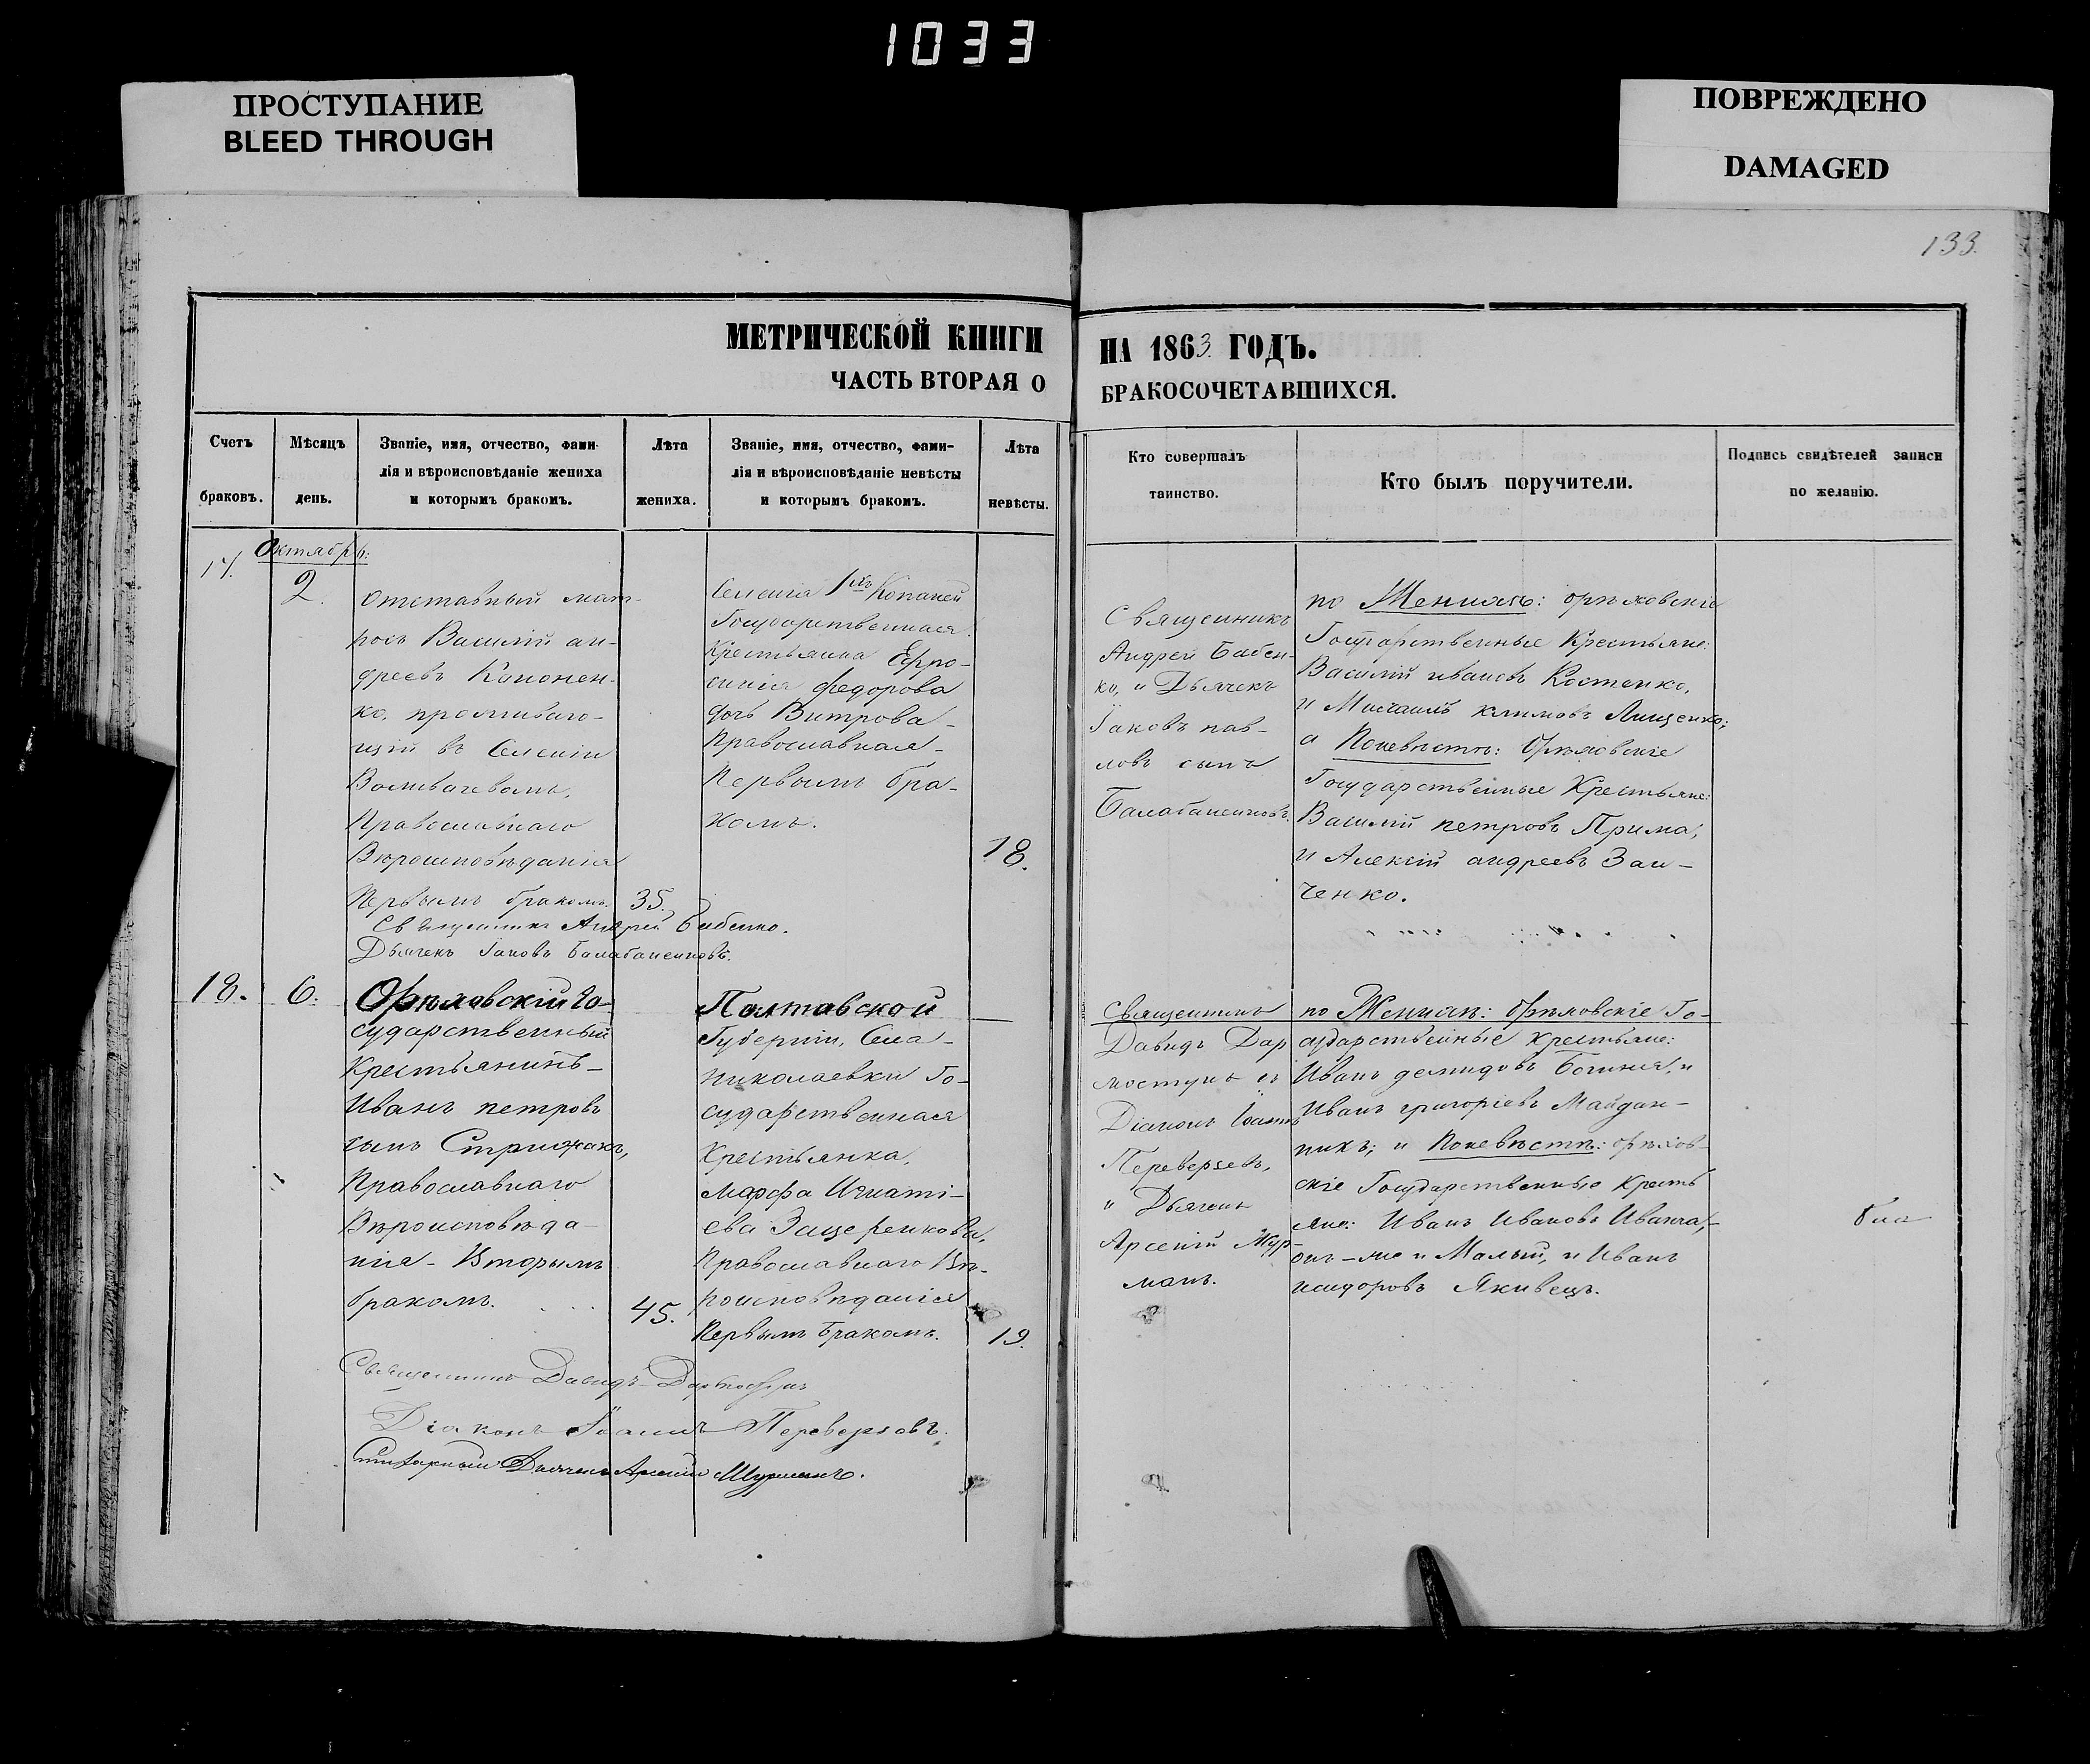 1033
ПРОСТУПАНИЕ
BLEED THROUGH
ПОВРЕЖДЕНО
DAMAGED
133.
МЕТРИЧЕСКОЙ КНИГИ
ЧАСТЬ ВТОРАЯ О
НА 1863 ГОДЪ.
БРАКОСОЧЕТАВШИХСЯ.
Счетъ
браковъ.
Мѣсяцъ
день.
Званіе, имя, отчество, фами-
лія и вѣроисповѣданіе жениха
и которымъ бракомъ.
Лѣта
жениха.
Званіе, имя, отчество, фами-
лія и вѣроисповѣданіе невѣсты
и которымъ бракомъ.
Лѣта
невѣсты.
Кто совершалъ
таинство.
Кто былъ поручители.
Подпись свидѣтелей записи
по желанію.
Октябрь:
2.
Отставный мат-
росъ Василій ан-
дреевъ
ко, проживаю-
щій въ Селеніи
Православнаго
Вѣроисповѣданія
Первымъ бракомъ.
35.
Селенія 1хъ Копаней
Государственная
Крестьянка Ефро-
синія Федорова
дочь Витрова
Православная
Первымъ бра-
комъ.
18.
Священникъ
Андрей Бабен-
ко, и Дьячекъ
Іаковъ пав-
ловъ сынъ
по Женихѣ: орѣховскіе
Государственные Крестьяне:
Василій ивановъ Костенко,
и Михаилъ климовъ Лищенко;
а Поневѣстѣ: Орѣховскіе
Государственные Крестьяне:
Василій петровъ Прима,
и Алексій андреевъ Заи-
ченко.
Священникъ Андрей Бабенко.
Дьячекъ Іаковъ
18.
6.
Орѣховскій Го-
сударственный
Крестьянинъ
Иванъ петровъ
сынъ Стрижакъ,
Православнаго
Вѣроисповѣда-
нія - Вторымъ
бракомъ.
45.
Полтавской
Губерніи, Села
николаевки Го-
сударственная
Крестьянка,
марфа Игнаті-
ева
Православнаго Вѣ-
роисповѣданія
Первымъ бракомъ.
19.
Священникъ
Давидъ Дар
мостукъ съ
Діакономъ
Переверзевъ,
и Дьячекъ
Арсеній
по Женихѣ: Орѣховскіе Го-
сударственные Крестьяне:
Иванъ демидовъ и
Иванъ григоріевъ Майдан-
никъ; и Поневѣстѣ: орѣхов-
скіе Государственные Кресть
яне: Иванъ Ивановъ
онъ-же и Малый, и Иванъ
исидоровъ Якивецъ.
Священникъ Давидъ
Діаконъ Іоаннъ Переверзевъ.
Дьячекъ Арсеній